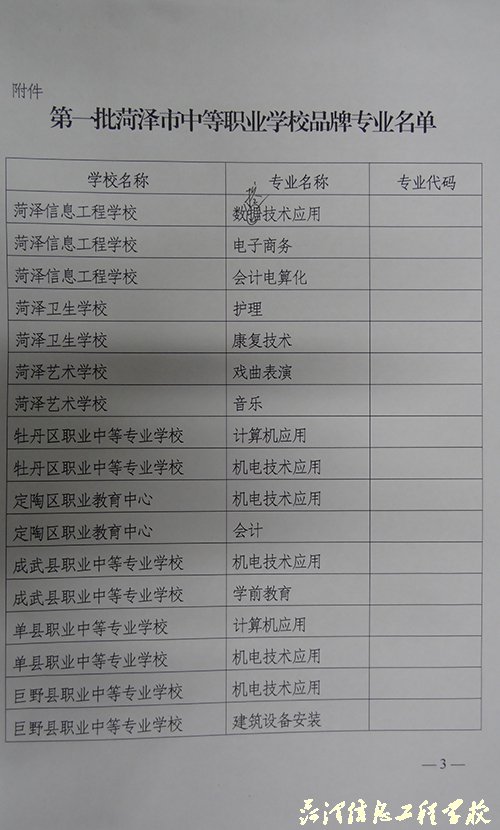 附件
第一批菏泽市中等职业学校品牌专业名单
学校名称 专业名称 专业代码
控
菏泽信息工程学校 数据技术应用
菏泽信息工程学校 电子商务
菏泽信息工程学校 会计电算化
菏泽卫生学校 护理
菏泽卫生学校 康复技术
菏泽艺术学校 戏曲表演
菏泽艺术学校 音乐
牡丹区职业中等专业学校 计算机应用
牡丹区职业中等专业学校 机电技术应用
定陶区职业教育中心 机电技术应用
定陶区职业教育中心 会计
成武县职业中等专业学校 机电技术应用
成武县职业中等专业学校 学前教育
单县职业中等专业学校 计算机应用
单县职业中等专业学校 机电技术应用
巨野县职业中等专业学校 机电技术应用
巨野县职业中等专业学校 建筑设备安装
—3—
菏泽信息工程学校